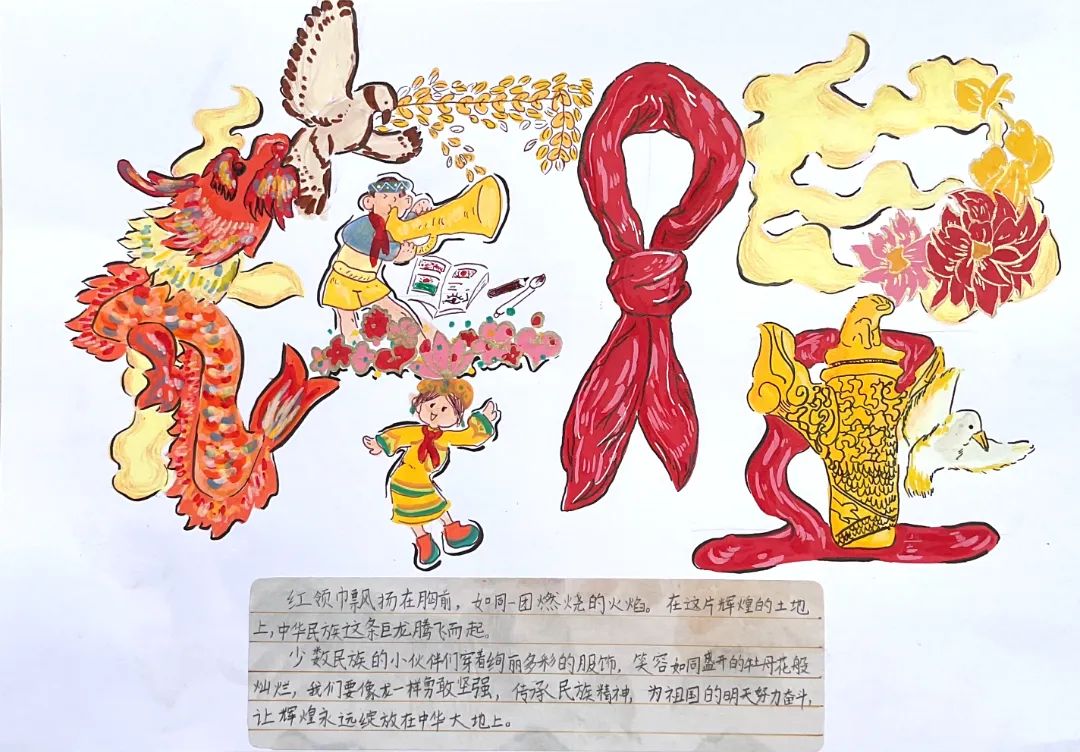 红领巾飘扬在胸前，如同一团燃烧的火焰。在这片辉煌的土地
上，中华民族这条巨龙腾飞而起。
少数民族的小伙伴们穿着绚丽多彩的服饰，笑容如同盛开的牡丹花般
灿烂，我们要像龙一样勇敢坚强，传承民族精神，为祖国的明天努力奋斗，
让辉煌永远绽放在中华大地上。